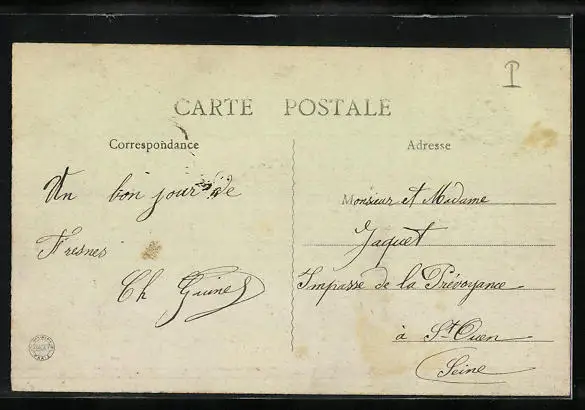 CARTE POSTALE
Correspondance
Adresse
Un bon jour de
Fresnes
Ch
Monsieur et Madame
Jaquet
Impasse de la Prévoyance
à St Ouen
Seine